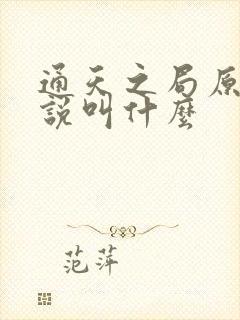 通天之局原
說叫什麼
范萍